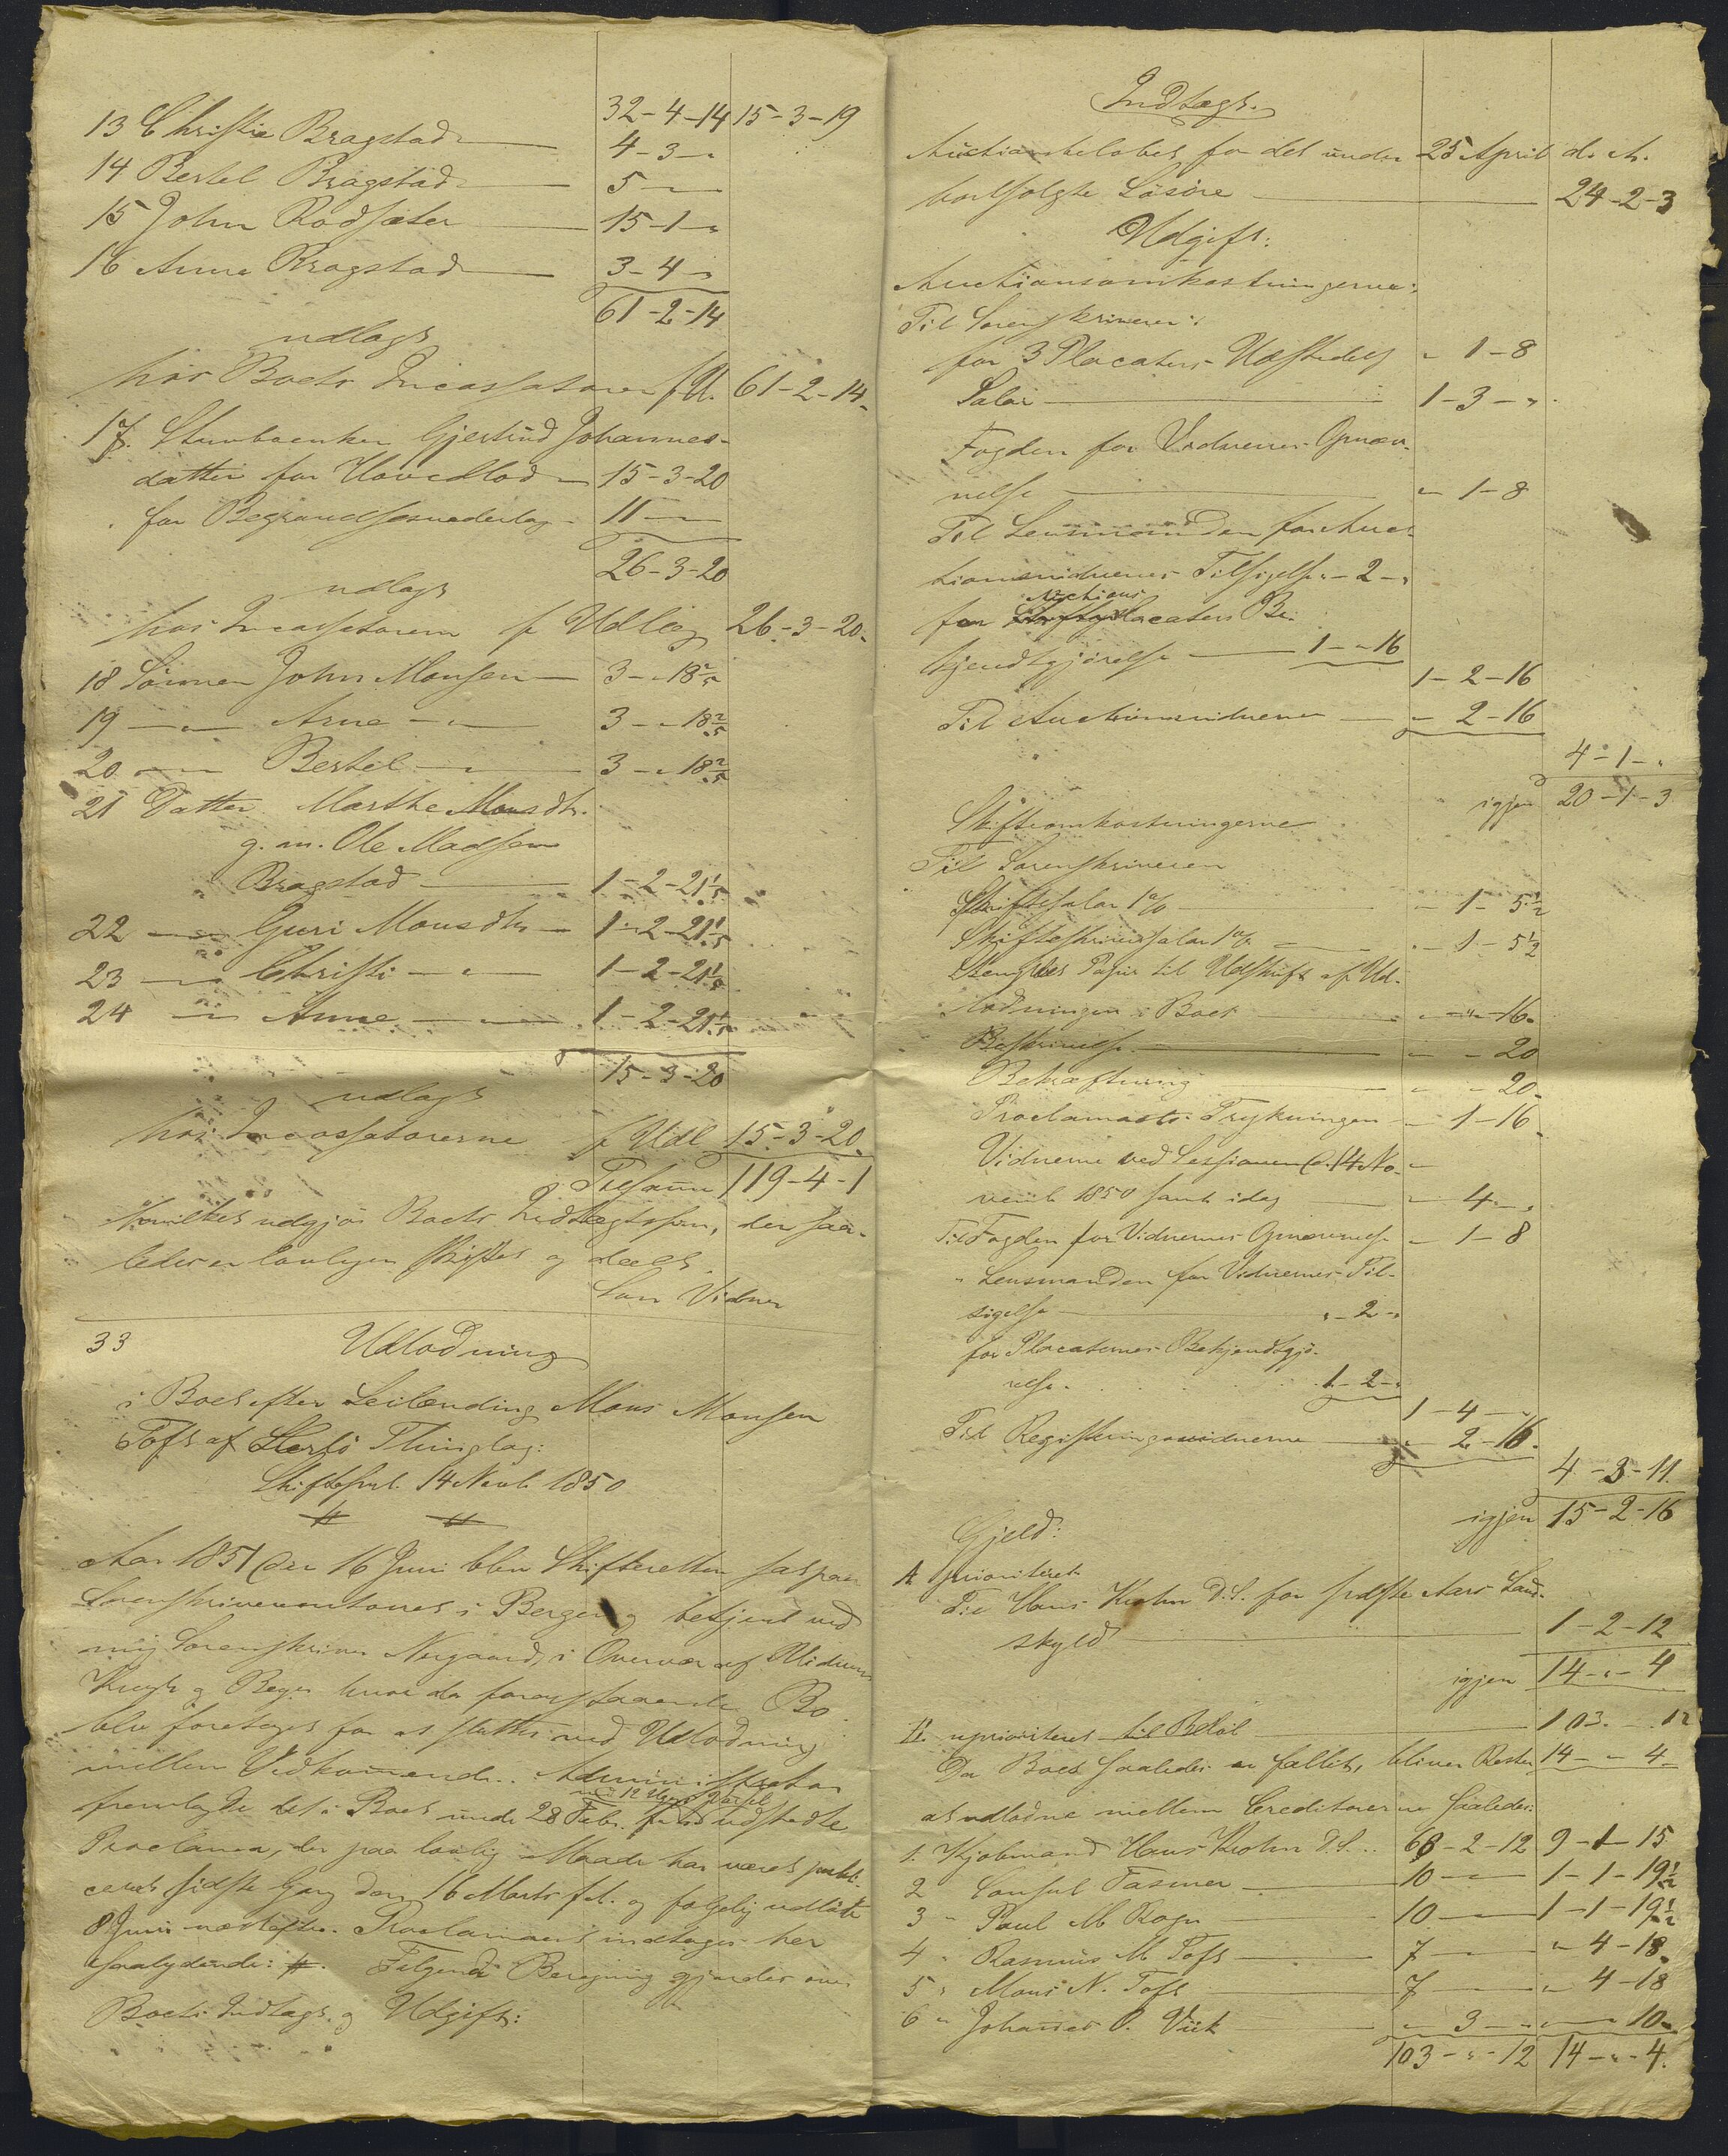 32-4-14 15-3-19
13 Christie Bragstad 4-3-"
14 Bertel Bragstad 5 - " -
15 John Rodsæter 15-1-"
16 Anne Bragstad 3-4-"
61-2-14
udlagt
hos Boets Incassatorer f U. 61-2-14.
17. Stervboenken Gjertrud Johannes-
datter for Hovedlod 15-3-20
for Begravelsesvederlag 11 - " -
26-3-20
udlagt
hos Incassatorerne f Udlæg 26-3-20.
18 Sønnen John Monsen 3-"-18 2/5
19 - " - Arne - " - 3-"-18 2/5
20 - " - Bertel - " - 3-"-18 2/5
21 Datter Marthe Monsdtr.
g. m. Ole Madsen
Bragstad 1-2-21 1/5
22 - " - Guri Monsdtr 1-2-21 1/5
23 - " - Christi - " - 1-2-21 1/5
24 - " - Anne - " - 1-2-21 1/5
15-3-20
udlagt
hos Incassatorerne f Udl 15-3-20.
Tilsamn 119-4-1
hvilket udgjør Boets Indtægtssum, der saa-
ledes er lovligen skiftet og deelt.
Som Vidner
33 Udlodning
i Boet efter Leilænding Mons Monsen
Toft af Herlø Thinglag:
Skifteprot. 14 Novb. 1850
Aar 1851 den 16 Juni blev Skifteretten sat paa
Sorenskrivercontoret i Bergen og betjent ved
mig Sorenskriver Norgaard, i Overvær af Vidnerne
Krogh og Beyer hvor da foranstaaende Bo
blev foretaget for at slutte med Udlodning
mellem Vedkommende. Administrator
med 12 Ugers Varsel
fremlagde det i Boet under 28 Febr. f A udstædte
Proclama, der paa lovlig Maade har været publi-
ceret sidste Gang den 16 Marts f. A. og følgelig udløbet
8 Juni næstefter. Proclamaet indtages her
saalydende: #. Følgende Beregning gjordes over
Boets Indtægt og Udgift:
Indtægt.
Auctionsbeløbet for det under 25 April d. A.
bortsolgte Løsøre 24-2-3
Udgift:
Auctionsomkostningerne:
Til Sorenskriveren:
for 3 Placaters Udstedelse " 1-8
Salair 1-3-"
Fogden for Vidnernes Opnæv-
nelse " 1-8
Til Lensmanden for Auc-
tionsvidnernes Tilsigelse "-2-"
Auctions
for Placaters Be-
kjendtgjørelse 1-"-16
1-2-16
Til Auctionsvidnerne " 2-16
4-1-"
igjen 20-1-3
Skifteomkostningerne
Til Sorenskriveren
Skiftesalar 1 % "-1-5 1/2
Skifteskriversalar 1 % "-1-5 1/2
Stemplet Papir til Udskrift af Ud-
lodningen i Boet "-"-16.
Beskrivelse "-"-20
Bekræftning "-"-20.
Proclamaets Trykningen "-1-16.
Vidnerne ved Sessionen d. 14 No-
vemb 1850 samt idag "-4-"
Til Fogden for Vidnernes Opnævnelse "-1-8
" Lensmanden for Vidnernes Til-
sigelse "-2-"
for Placaternes Bekjendtgjø-
relse. 1-2-"
1-4-"
Til Registeringsvidnerne "-2-16.
4-3-11.
igjen 15-2-16
Gjeld:
A prioriteret
Til Hans Krohn D. S. for sidste Aars Land-
skyld 1-2-12
igjen 14-"-4
B. uprioriteret til Beløb 103-"-12
Da Boet saaledes er fallit, bliver Resten 14-"-4
at udlodne mellem Creditorerne saaledes:
1. Kjøbmand Hans Krohn D. S. 68-2-12 9-1-15
2 Consul Fasmer 10 - " - 1-1-19 1/2
3 " Paul M Rogn 10 - " - 1-1-19 1/2
4 " Rasmus M. Toft 7 - " - "4-18.
5 " Mons N. Toft 7 - " - "4-18
6 " Johannes O. Viik "-3-" "-"-10.
103-"-12 14-"-4.